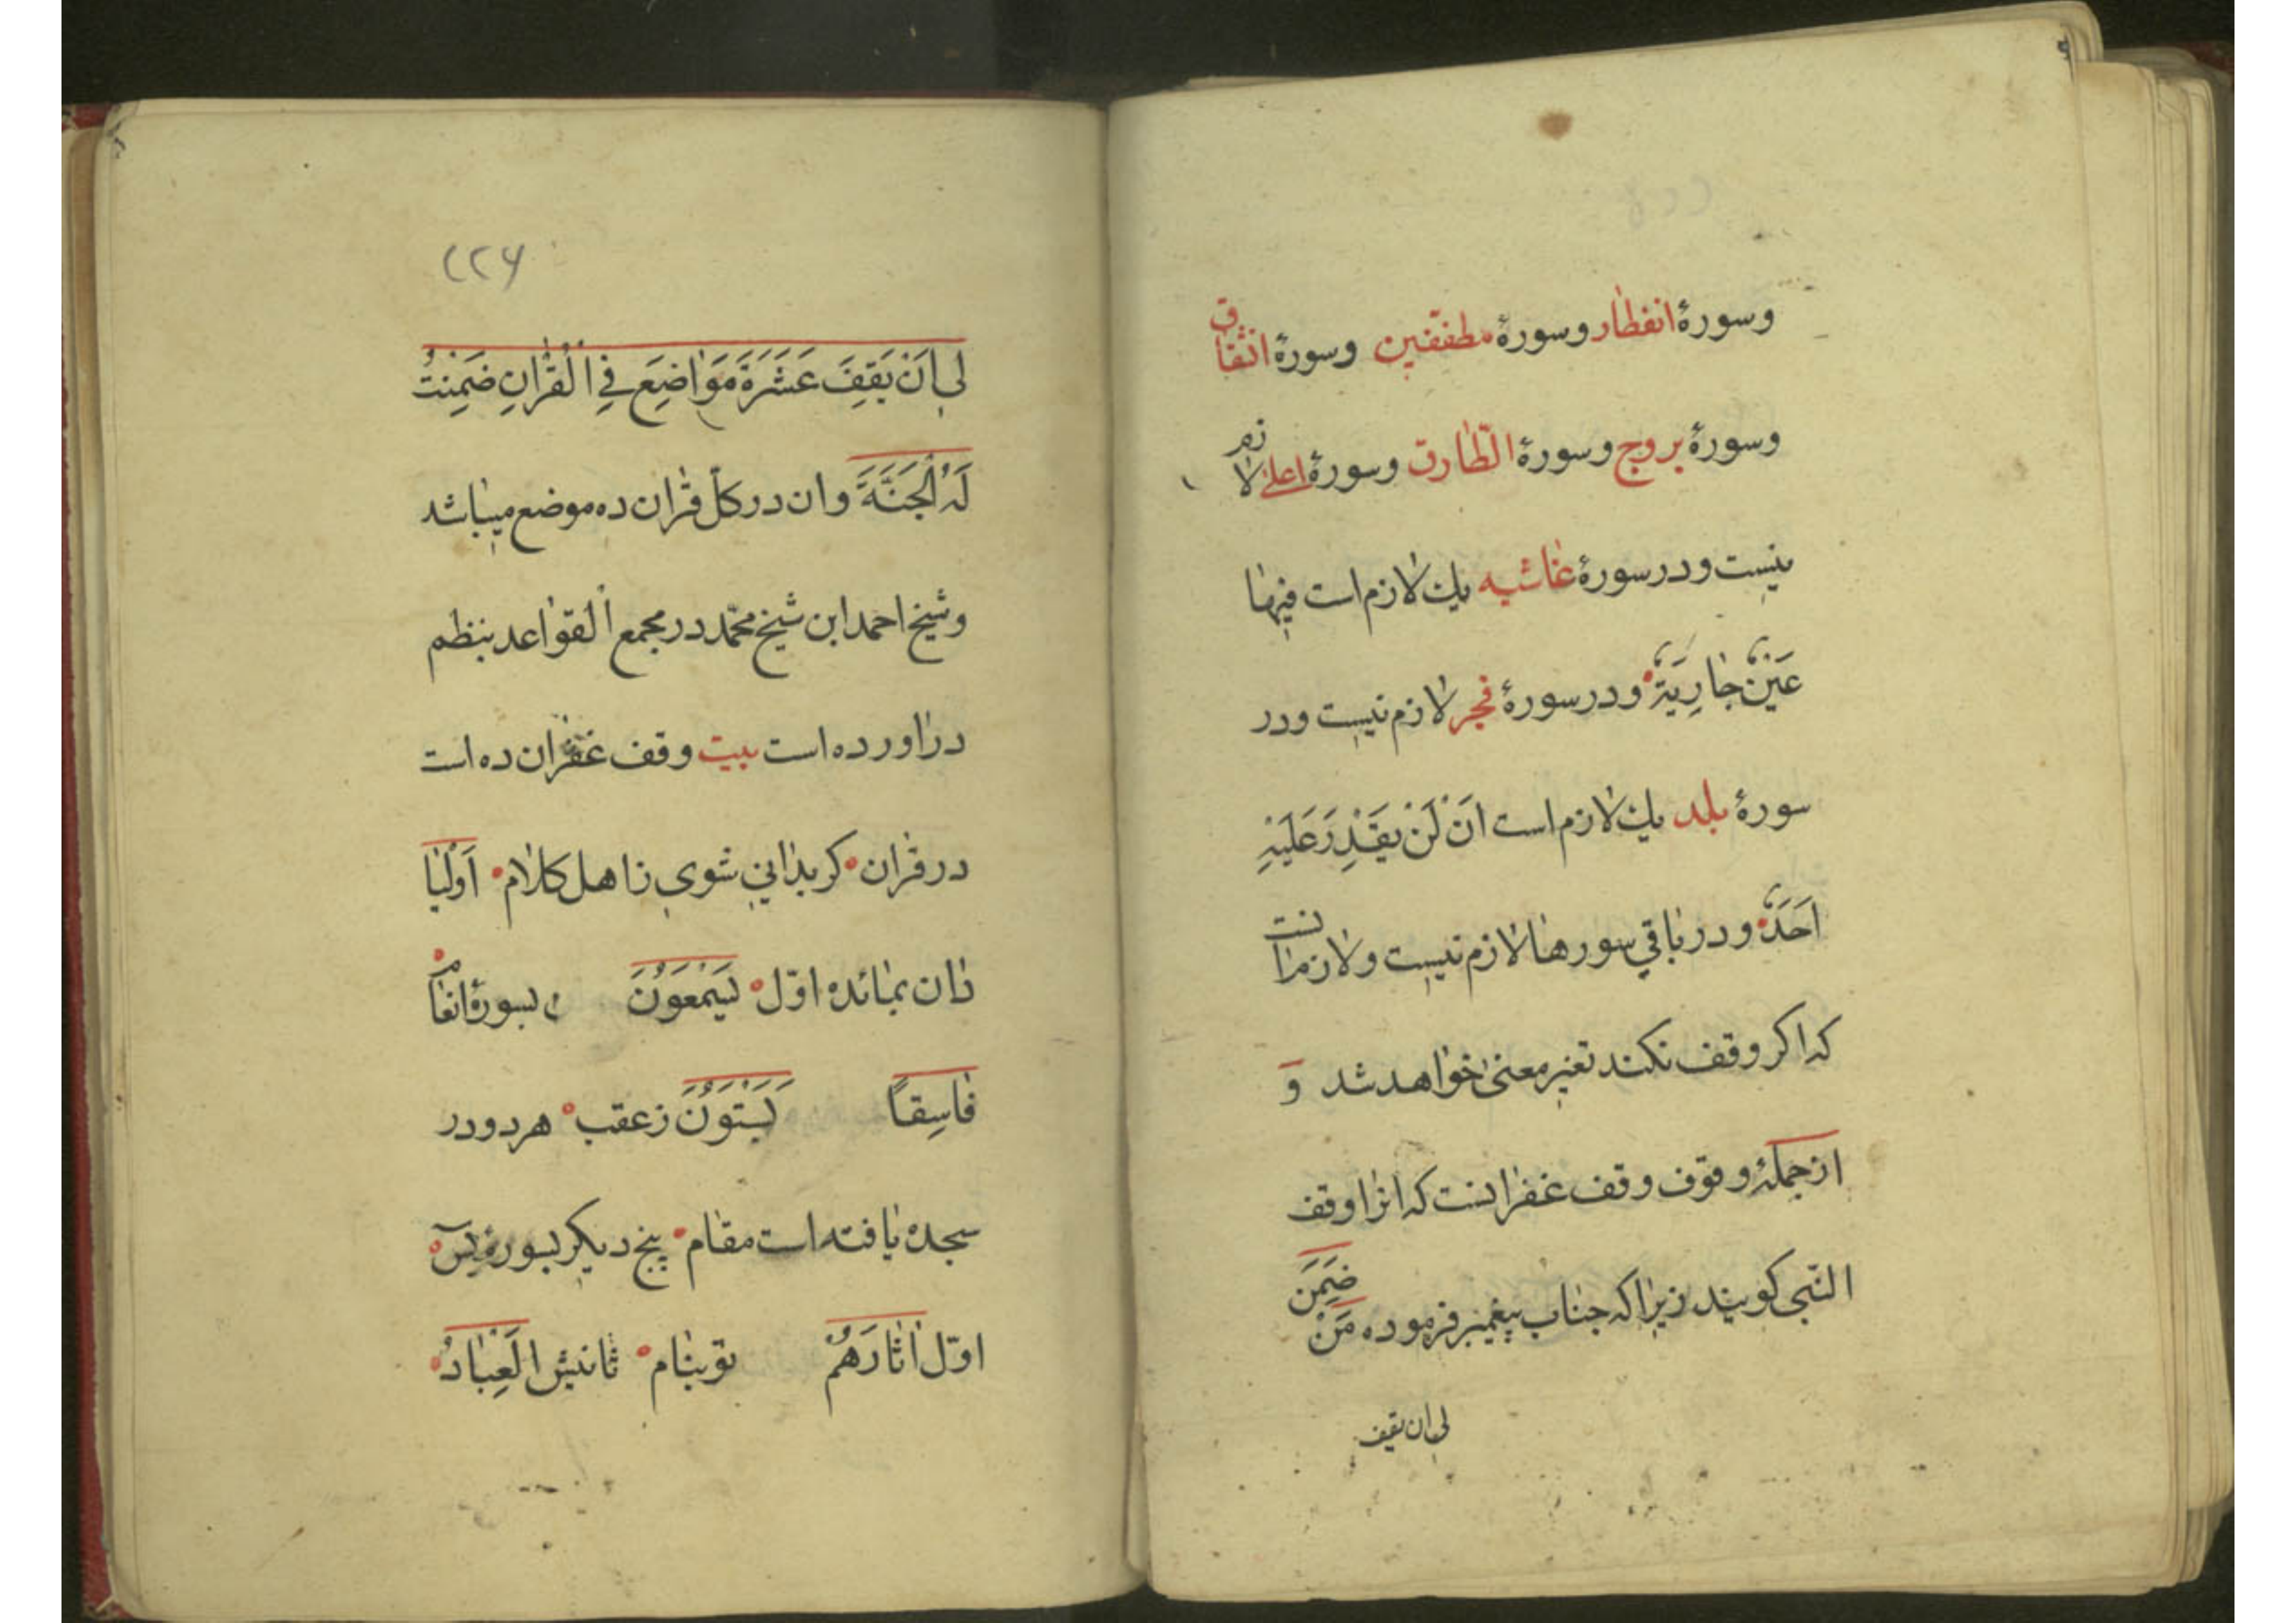 وسورۀ انفطار وسورۀ مطفّفین وسورۀ انشقاق
وسورۀ بروج وسورۀ الطّارق وسورۀ اعلی لازم
نیست ودر سورۀ غاشیه یك لازم است فیها
عَیْنٌ جارِیَةٌ ودر سورۀ فجر لازم نیست ودر
سورۀ بلد یك لازم است اَنْ لَنْ یَقْدِرَ عَلَیْهِ
اَحَدٌ ودر باقی سورها لازم نیست ولازم انست
که اکر وقف نکند تغیر معنی خواهد شد وَ
از جملۀ وقوف وقف غفرانست که انرا وقف
النّبی کویند زیرا که جناب پیغمبر فرموده مَنْ ضَمِنَ
لی ان یقف
٢٢۶
لی اَنْ یَقِفَ عَشَرَةَ مَوَاضِعَ فِی الْقُرْانِ ضَمِنْتُ
لَهُ الْجَنَّةَ وان در کلّ قران ده موضع میباشد
وشیخ احمد ابن شیخ محمّد در مجمع القواعد بنظم
دراورده است بیت وقف غفران ده است
در قران کر بدانی شوی زاهل کلام اَوْلِیا
زان بمائده اوّل یَسْمَعُونَ بسورۀ انعام
فاسِقاً یَسْتَوُنَ زعقب هر دو در
سجده یافته است مقام پنج دیکر بسورۀ یسۤ
اوّل اثارَهُمْ توبنام ثانیش الْعِبادُ